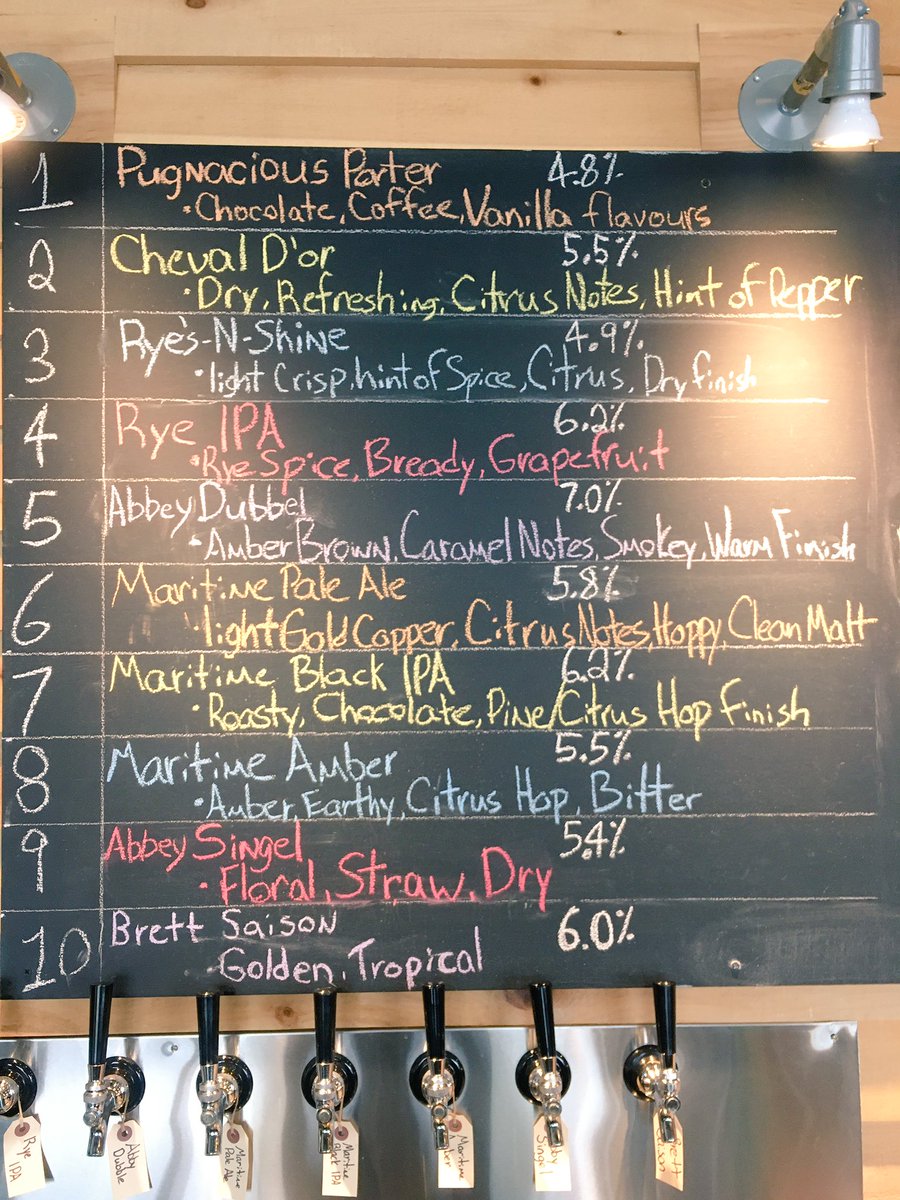 1 Pugnacious Porter 4.8%
•Chocolate, Coffee, Vanilla flavours
2 Cheval D'or 5.5%
•Dry, Refreshing, Citrus Notes, Hint of Pepper
3 Rye's-N-Shine 4.9%
•light Crisp, hint of Spice, Citrus, Dry finish
4 Rye IPA 6.2%
•Rye Spice, Bready, Grapefruit
5 Abbey Dubbel 7.0%
•Amber Brown, Caramel Notes, Smokey, Warm Finish
6 Maritime Pale Ale 5.8%
•light Gold Copper, Citrus Notes, Hoppy, Clean Malt
7 Maritime Black IPA 6.2%
•Roasty, Chocolate, Pine/Citrus Hop Finish
8 Maritime Amber 5.5%
•Amber, Earthy, Citrus Hop, Bitter
9 Abbey Singel 5.4%
•Floral, Straw, Dry
10 Brett Saison 6.0%
•Golden, Tropical
Rye
IPA
Abby
Dubble
Maritime
Pale Ale
Maritime
Black IPA
Maritime
Singel